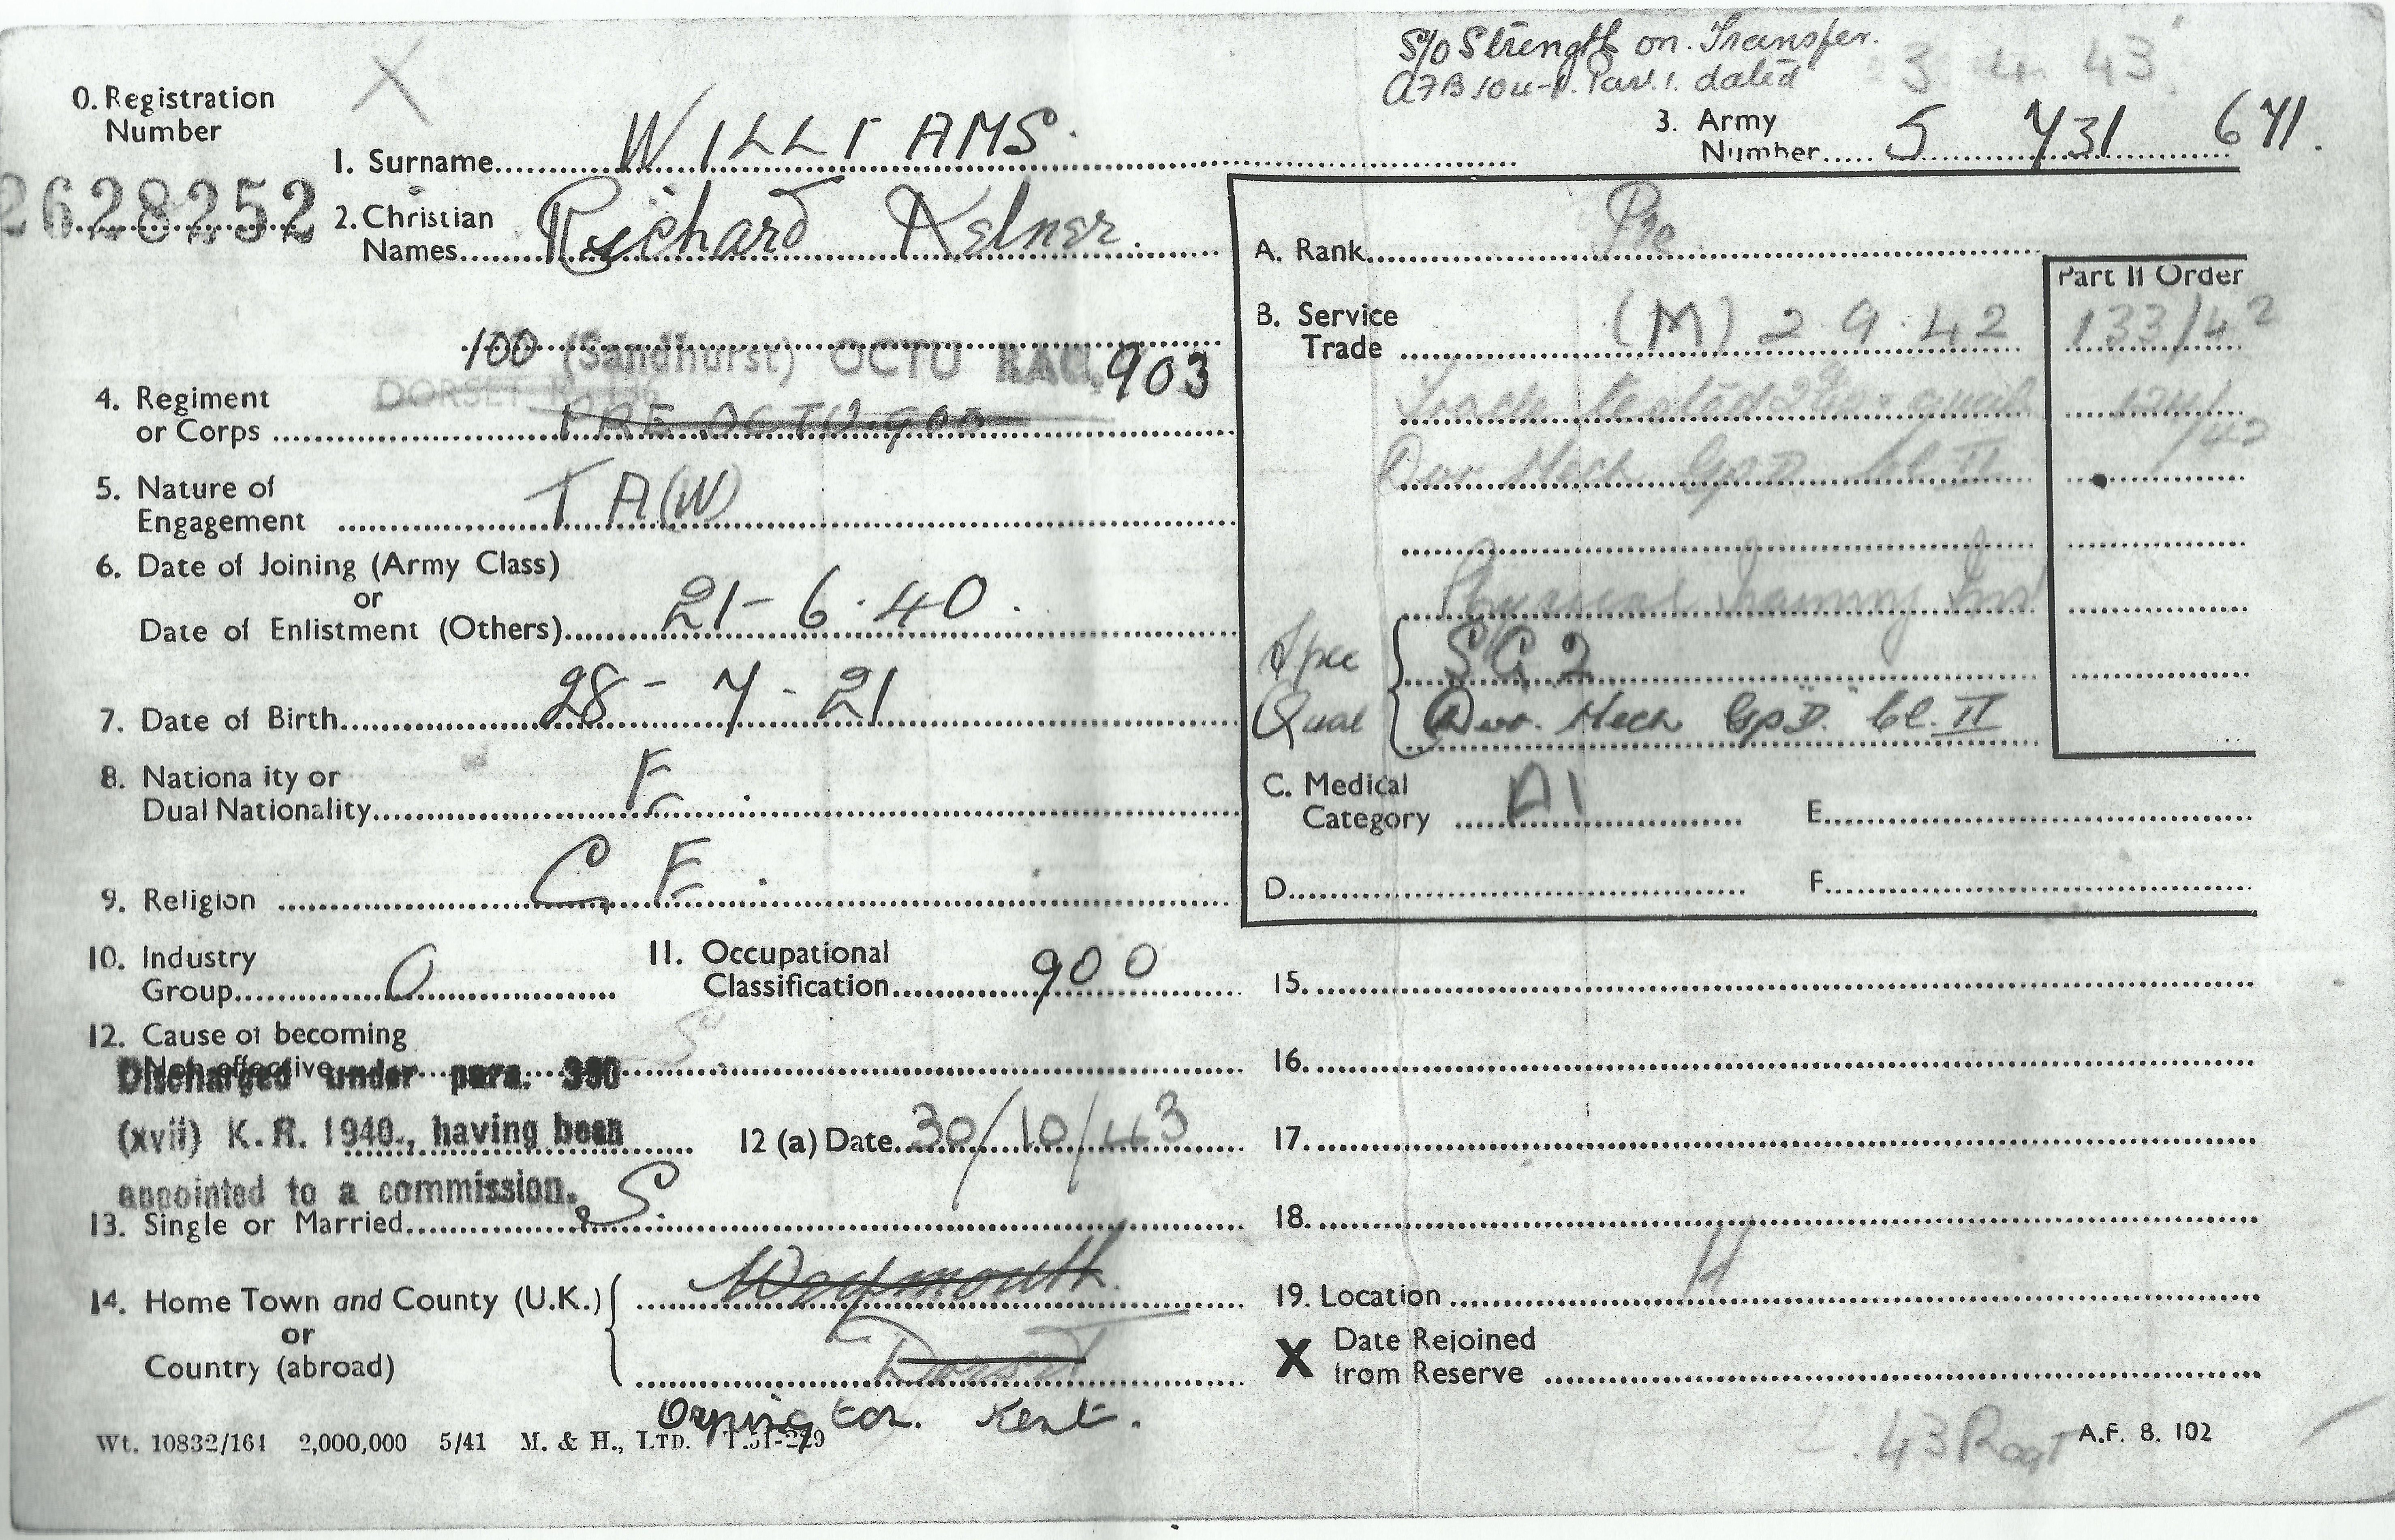 S/O Strength on Transfer. 3 4 43
AFB 104-1. Par. 1. dated
0. Registration Number X
2628252
1. Surname WILLIAMS.
3. Army Number 5 731 671.
2. Christian Names Richard
A. Rank Pte
Part II Order
B. Service Trade (M) 2 9.42 133/42
100 (Sandhurst) OCTU RAC. 903
DORSET
4. Regiment or Corps PRE OCTU 900
Trade tested
Dvr Mech Gp D Cl. II
5. Nature of Engagement T A (W)
6. Date of Joining (Army Class)
or
Date of Enlistment (Others) 21-6.40.
Physical Training Inst
Spec SG 2
Qual Dvr. Mech Gp D. Cl. II
7. Date of Birth 28-7-21
8. Nationa ity or Dual Nationality E.
C. Medical Category A1 E.
9. Religion C. E.
D. F.
10. Industry Group O
11. Occupational Classification 900
15.
12. Cause of becoming
Non-effective
16.
Discharged under para. 390
(xvii) K.R. 1940., having been
appointed to a commission.
12 (a) Date 30/10/43
17.
13. Single or Married S.
18.
14. Home Town and County (U.K.)
or
Country (abroad)
Weymouth.
Dorset
Orpington. Kent.
19. Location H
X Date Rejoined from Reserve
Wt. 10832/161 2,000,000 5/41 M. & H., LTD.
43 Regt
A.F. B. 102